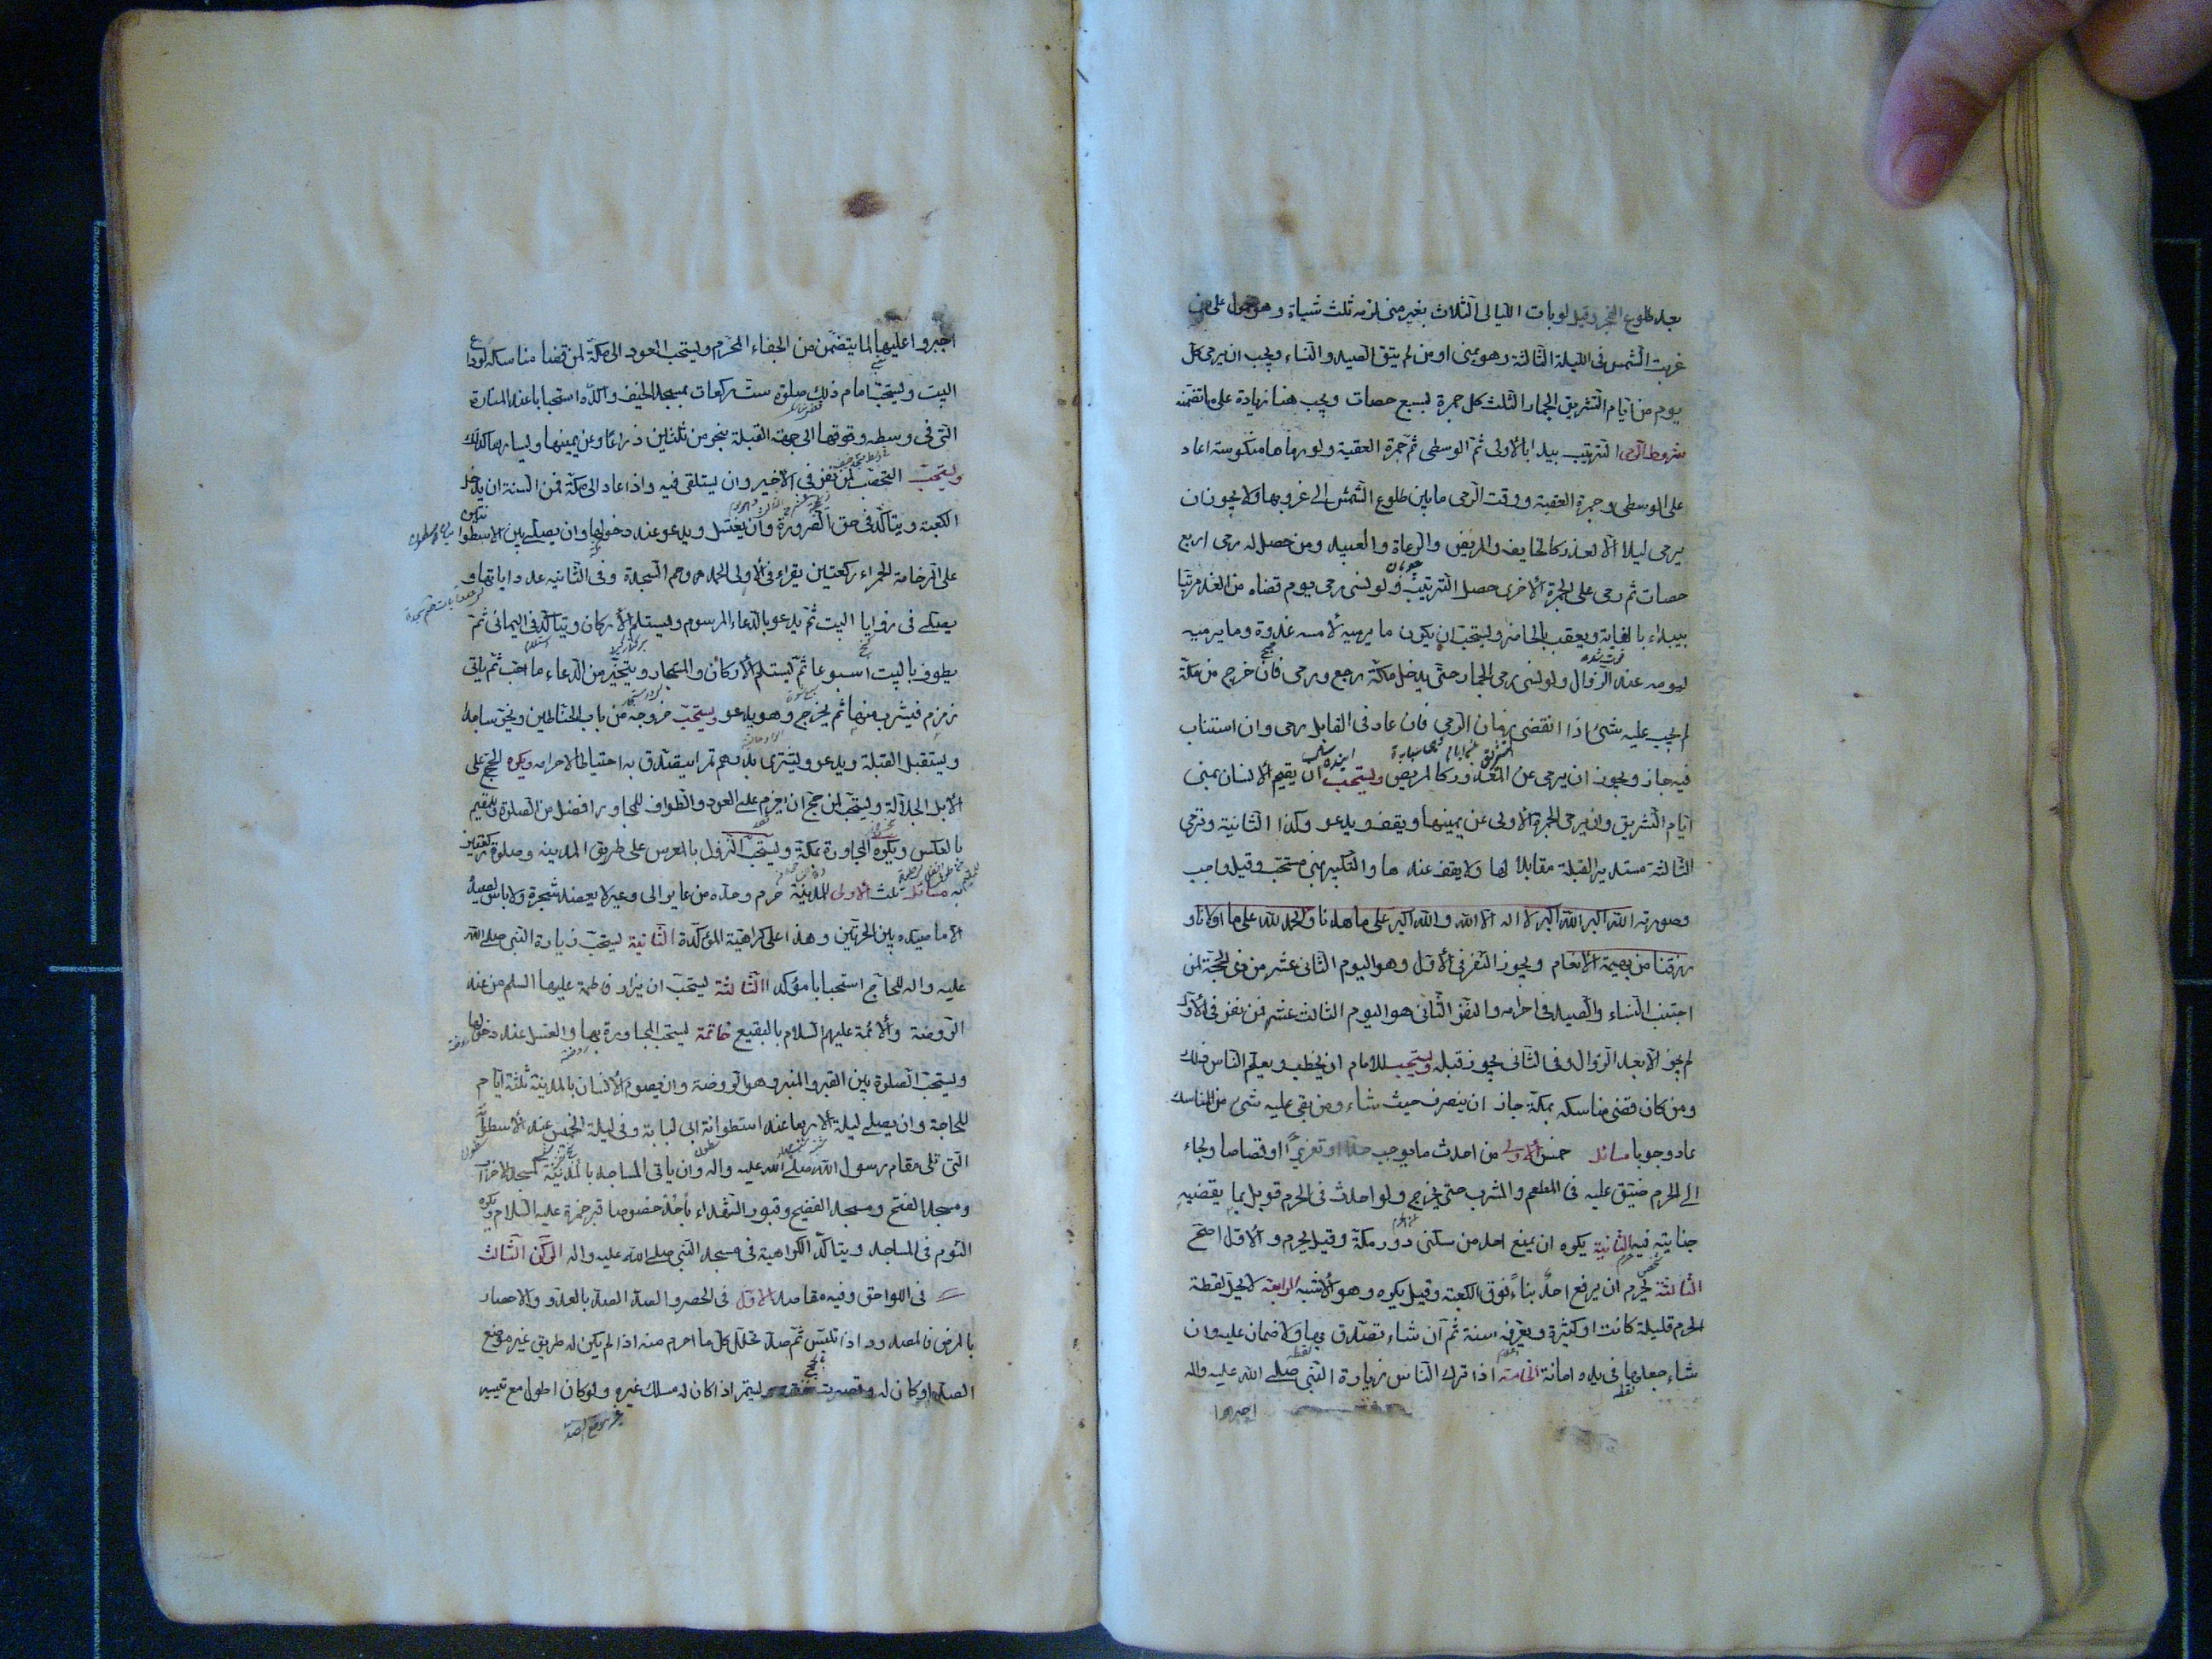 بعد طلوع الفجر وقيل لو بات الليالي الثلاث بغير منى لزمه ثلث شياة وهو محمول على من
غربت الشمس في الليلة الثالثة وهو بمنى او من لم يتق الصيد والنساء ويجب ان يرمى كل
يوم من ايام التشريق الجمار الثلث كل جمرة بسبع حصات ويجب هنا زيادة على ما تضمنه
شروط الرمى الترتيب يبدا بالاولى ثم الوسطى ثم جمرة العقبة ولو رماها منكوسة اعاد
على الوسطى وجمرة العقبة ووقت الرمى ما بين طلوع الشمس الى غروبها ولا يجوز ان
يرمى ليلا الا لعذر كالخايف والمريض والرعاة والعبيد ومن حصل له رمى اربع
حصات ثم رمى على الجمرة الاخرى حصل الترتيب ولو نسى رمى يوم قضاه من الغد مرتبا
يبداء بالفايت ويعقب بالحاضر ويستحب ان يكون ما يرميه لامسه غدوة وما يرميه
ليومه عند الزوال ولو نسى رمى الجمار حتى يدخل مكة رجع ورمى فان خرج من مكة
لم يجب عليه شئ اذا انقضى زمان الرمى فان عاد في القابل رمى وان استناب
فيه جاز ويجوز ان يرمى عن المعذور كالمريض ويستحب ان يقيم الانسان بمنى
ايام التشريق وان يرمى الجمرة الاولى عن يمينها ويقف ويدعو وكذا الثانية وترمى
الثالثة مستدير القبلة مقابلا لها ولا يقف عندها والتكبير بمنى مستحب وقيل واجب
وصورته الله اكبر الله اكبر لا اله الا الله والله اكبر على ما هدانا والحمد لله على ما اولانا و
رزقنا من بهيمة الانعام ويجوز النفر في الاول وهو اليوم الثانى عشر من ذى الحجة لمن
اجتنب النساء والصيد في احرامه والنفر الثانى هو اليوم الثالث عشر فمن نفر في الاول
لم يجز الا بعد الزوال وفي الثانى يجوز قبله ويستحب للامام ان يخطب ويعلم الناس ذلك
ومن كان قضى مناسكه بمكة جاز ان ينصرف حيث شاء ومن بقى عليه شئ من المناسك
عاد وجوبا مسائل خمس الاولى من احدث ما يوجب حدا او تعزيرا او قصاصا ولجاء
الى الحرم ضيق عليه في المطعم والمشرب حتى يخرج ولو احدث في الحرم قوبل بما يقتضيه
جنايته فيه الثانية يكره ان يمنع احد من سكنى دور مكة وقيل يحرم والاول اصح
الثالثة يحرم ان يرفع احد بناءً فوق الكعبة وقيل يكره وهو الاشبه الرابعة لا يحل لقطة
الحرم قليلة كانت او كثيرة ويعرف سنة ثم ان شاء تصدق بها ولا ضمان عليه وان
شاء جعلها في يده امانة الخامسة اذا ترك الناس زيارة النبى صلى الله عليه واله
اجبروا
اجبروا عليها لما يتضمن من الجفاء المحرم ويستحب العود الى مكة لمن قضا مناسكه لوداع
البيت ويستحب امام ذلك صلوة ست ركعات بمسجد الخيف واكده استحبابا عند المنارة
التى في وسطه وفوقها الى جهة القبلة بنحو من ثلثين ذراعا وعن يمينها ويسارها كذلك
ويستحب التحصب لمن نفر في الاخير وان يستلقى فيه واذا عاد الى مكة فمن السنة ان يدخل
الكعبة ويتاكد في حق الضرورة وان يغتسل ويدعو عند دخولها وان يصلى بين الاسطوانتين
على الرخامة الحمراء ركعتين يقراء في الاولى الحمد وحم السجدة وفي الثانية عدد اياتها و
يصلى في زوايا البيت ثم يدعو بالدعاء المرسوم ويستلم الاركان ويتاكد في اليمانى ثم
يطوف بالبيت اسبوعا ثم يستلم الاركان والمستجار ويتخير من الدعاء ما احب ثم ياتى
زمزم فيشرب منها ثم يخرج وهو يدعو ويستحب خروجه من باب الحناطين ويخر ساجدا
ويستقبل القبلة ويدعو ويشترى بدرهم تمرا يتصدق به احتياطا لاحرامه ويكره الحج على
الابل الجلالة ويستحب لمن حج ان يعزم على العود والطواف للمجاور افضل من الصلوة وللمقيم
بالعكس ويكره المجاورة بمكة ويستحب النزول بالمعرس على طريق المدينه وصلوة ركعتين
به مسائل ثلث الاولى للمدينة حرم وحده من عاير الى وعير لا يعضد شجرة ولا باس بصيده
الا ما صيد بين الحرتين وهذا على كراهية المؤكدة الثانية يستحب زيارة النبى صلى الله
عليه واله للحاج استحبابا مؤكدا الثالثة يستحب ان يزار فاطمة عليها السلم من عند
الروضة والائمة عليهم السلام بالبقيع خاتمة يستحب المجاورة بها والغسل عند دخولها
ويستحب الصلوة بين القبر والمنبر وهو الروضة وان يصوم الانسان بالمدينة ثلثة ايام
للحاجة وان يصلى ليلة الاربعا عند اسطوانة ابى لبابة وفي ليلة الخميس عند الاسطوانة
التى تلى مقام رسول الله صلى الله عليه واله وان ياتى المساجد بالمدينة كمسجد الاحزاب
ومسجد الفتح ومسجد الفضيخ وقبور الشهداء باحد خصوصا قبر حمزة عليه السلام ويكره
النوم في المساجد ويتاكد الكراهية في مسجد النبى صلى الله عليه واله الركن الثالث
في اللواحق وفيه مقاصد الاول في الحصر والصد الصد بالعدو والاحصار
بالمرض فالمصدود اذا تلبس ثم صد تحلل كل ما احرم منه اذا لم يكن له طريق غير موضع
الصد او كان له وقصرت نفقته ليتمر اذا كان له مسلك غيره ولو كان اطول مع تيسير